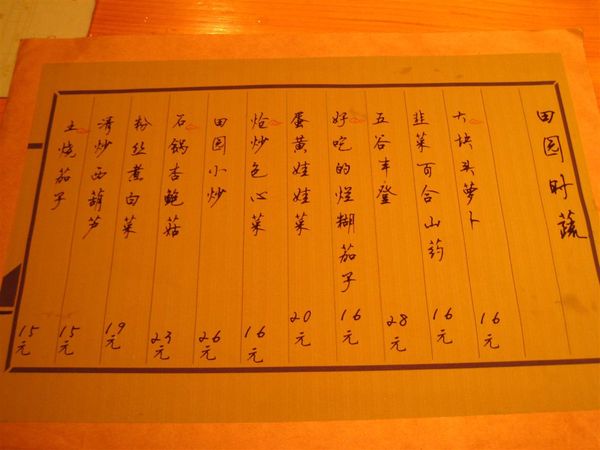 田园时蔬
大块头萝卜 16元
韭菜百合山药 16元
五谷丰登 28元
好吃的烂糊茄子 16元
蛋黄娃娃菜 20元
炝炒包心菜 16元
田园小炒 26元
石锅杏鲍菇 23元
粉丝煮白菜 19元
清炒西葫芦 15元
土烧茄子 15元